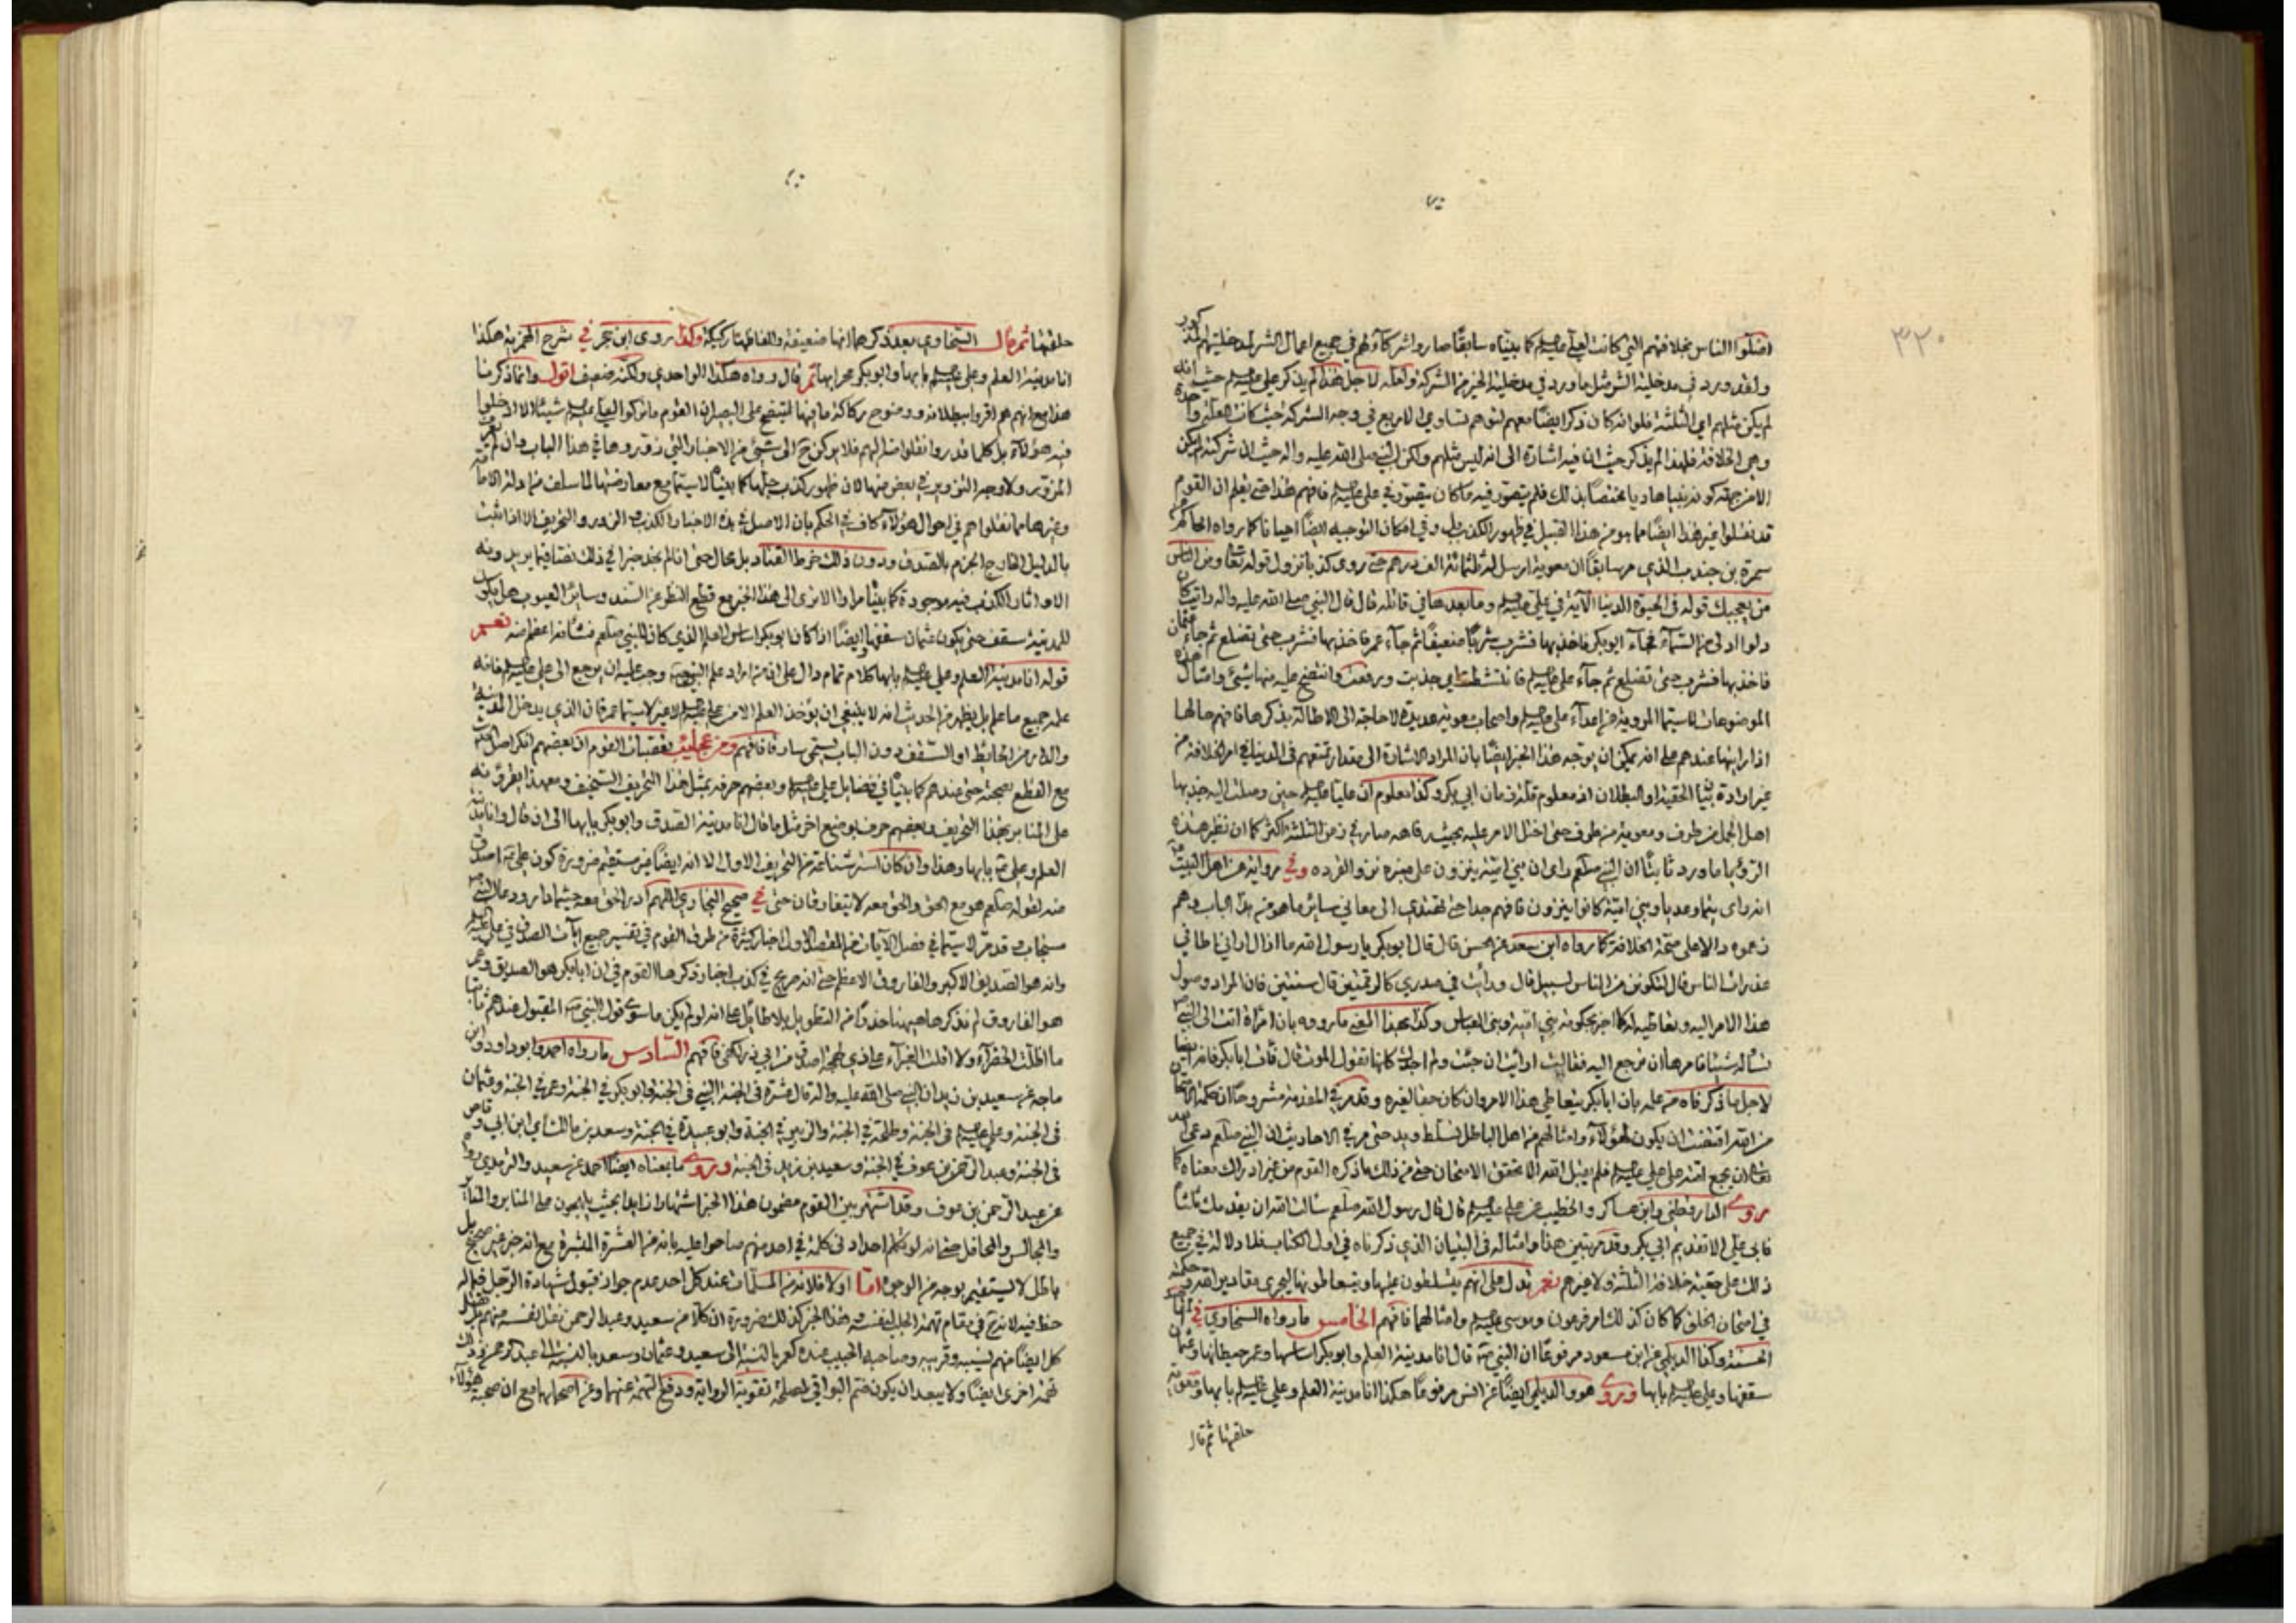 ٣٢٠
اضلوا الناس بخلافتهم التي كانت لعلي كما بيناه سابقا صاروا شركاء لهم في جميع اعمال الشر
ولقد ورد في مدخلية الشر مثل ما ورد في مدخلية الخير من الشركة ولعله لاجل هذا لم يذكر علي حيث انه
لم يكن مثلهم اي الثلثة فلو انه كان ذكر ايضا معهم لتوهم تساوي الاربع في وجه الشركة حيث كانت
وهي الخلافة فلهذا لم يذكر حيث ان فيه اشارة الى انه ليس مثلهم ولكن النبي صلى الله عليه واله حيث ان شركته لم يكن
الا من جهة كونه نبيا هاديا مختصا بذلك فلم يتصور فيه ما كان يتصور في علي فافهم هذا حتى تعلم ان القوم
قد نقلوا غير هذا ايضا مما هو من هذا القبيل في ظهور الكذب بل وفي امكان التوجيه ايضا احيانا كما رواه الحاكم
سمرة بن جندب الذي مر سابقا ان معوية ارسل له ثلثمائة الف درهم حتى روى كذبا نزول قوله تعا ومن الناس
من يعجبك قوله في الحيوة الدنيا الآية في علي وما بعدها في قاتله قال قال النبي صلى الله عليه واله رايت كان
دلوا ادلى من السماء فجاء ابو بكر فاخذ بها فشرب شربا ضعيفا ثم جاء عمر فاخذ بها فشرب حتى تضلع ثم جاء عثمان
فاخذ بها فشرب حتى تضلع ثم جاء علي فانتشطت اي جذبت ورفعت وانتضح عليه منها شيئ وامثال هذه
الموضوعات لا سيما المروية من اعداء علي واصحاب معوية عديدة لا حاجة الى الاطالة بذكرها فافهم حالها
اذا رايتها عندهم على انه يمكن ان يوجه هذا الخبر ايضا بان المراد الاشارة الى مقدار تمتعهم في الدنيا في امر الخلافة من
غير ارادة بيان الحقية او البطلان اذ معلوم قلة زمان ابي بكر وكذا معلوم ان عليا حين وصلت اليه جذبها
اهل الجمل من طرف ومعوية من طرف حتى اختل الامر عليه بحيث صار في زمن الثلثة اكثر كما ان نظير هذه
الرؤيا ما ورد ثابتا ان النبي صلعم راى ان بني امية ينزون على منبره نزو القرده وفي رواية من اهل البيت
انه راى تيما وعديا وبني امية كانوا ينزون فافهم جدا حتى تهتدي الى معاني سائر ما هو من هذا الباب
زعموه دالا على صحة الخلافة كما رواه ابن سعد عن الحسن قال قال ابو بكر يا رسول الله ما ازال اراني اطا في
عذرات الناس قال لتكونن من الناس لسبيل قال ورايت في صدري كالرقمتين قال سنتين فان المراد وصول
هذا الامر اليه وتعاطيه له كما اخبر بحكومة بني امية وبني العباس وكذا بهذا المعنى ما رووه بان امراة اتت الى النبي
تساله شيئا فامرها ان ترجع اليه فقالت ارايت ان جئت ولم اجدك كانها تقول الموت قال فأت ابا بكر فانه ايضا
لاجل ما ذكرناه من علمه بان ابا بكر يتعاطى هذا الامر وان كان حقا لغيره وقد مر في المقدمة مشروحا ان حكمة الامتحان
من الله اقتضت ان يكون لهؤلاء وامثالهم من اهل الباطل تسلط ويد حتى مر في الاحاديث ان النبي صلعم دعى الله
تعا ان يجمع امته على علي فلم يقبل الله الا تحقق الامتحان حتى من ذلك ما ذكره القوم من غير ادراك معناه كما
روى الدارقطني وابن عساكر والخطيب عن علي قال قال رسول الله صلعم سالت الله ان يقدمك ثلثا
فابى علي الا تقديم ابي بكر وقد مر تبيين هذا وامثاله في البنيان الذي ذكرناه في اول الكتاب فلا دلالة في جميع
ذلك على حقية خلافة الثلثة ولا غيرهم نعم تدل على انهم يتسلطون عليها ويتعاطونها ليجري مقادير الله وحكمته
في امتحان الخلق كما كان كذلك امر فرعون وموسى وامثالهما فافهم الخامس ما رواه السخاوي في
الحسنة وكذا الديلمي عن ابن مسعود مرفوعا ان النبي قال انا مدينة العلم وابو بكر اساسها وعمر حيطانها وعثمان
سقفها وعلي بابها وروى هو والديلمي ايضا عن انس مرفوعا هكذا انا مدينة العلم وعلي بابها ومعوية
حلقتها ثم قال
حلقتها ثم قال السخاوي بعد ذكرها انها ضعيفة والفاظها ركيكة وكذا روى ابن حجر في شرح الهمزية هكذا
انا مدينة العلم وعلي بابها وابو بكر محرابها ثم قال رواه هكذا الواحدي ولكنه ضعيف اقول وانما ذكرنا
هذا مع انهم هم اقروا ببطلانه ووضوح ركاكة ما فيها ليتضح على البصير ان القوم ما تركوا لعلي شيئا الا ادخلوا
فيه هؤلاء بل كلما قدروا نقلوا مثله لهم فلا يركن ح الى شيئ من الاخبار التي زوروها في هذا الباب وان لم
المزور ولا وجه التزوير في بعض منها لان ظهور كذب جلها كما بينا لا سيما مع معارضتها لما سلف من ادلة الامامة
وغيرها مما نقلوا هم في احوال هؤلاء كاف في الحكم بان الاصل في هذه الاخبار الكذب والزور والتحريف الا اذا ثبت
بالدليل الخارج الجزم بالصدق ودون ذلك خرط القتاد بل محال حتى انا لم نجد خبرا في ذلك نصا فيما يريدونه
الا واثار الكذب فيه موجودة كما بينا مرارا الا ترى الى هذا الخبر مع قطع النظر عن السند وسائر العيوب هل يكون
للمدينة سقف حتى يكون عثمان سقفها وايضا اذا كان ابو بكر اساس العلم الذي كان للنبي صلعم فشأنه اعظم منه نعم
قوله انا مدينة العلم وعلي بابها كلام تمام دال على ان من اراد علم النبي وجب عليه ان يرجع الى علي فانه
علمه جميع ما علم بل يظهر من الحديث انه لا ينبغي ان يؤخذ العلم الا من علي لا غير لا سيما عمر فان الذي يدخل المدينة
والدار من الحائط او السقف دون الباب يسمى سارقا فافهم ومن عجائب تعصبات القوم ان بعضهم انكر اصل
مع القطع بصحته حتى عندهم كما بينا في فضايل علي وبعضهم حرفه بمثل هذا التحريف السخيف ومع هذا
على المنابر بهذا التحريف وبعضهم حرف بوضع اخر مثل ما قال انا مدينة الصدق وابو بكر بابها الى ان قال وانا مدينة
العلم وعلي بابها وهذا وان كان استر شناعة من التحريف الاول الا انه ايضا غير مستقيم ضرورة كون علي اصدق
منه لقوله صلعم هو مع الحق والحق معه لا يتفارقان حتى في صحيح البخاري اللهم ادر الحق معه حيثما دار ودعاء النبي
مستجاب وقد مر لا سيما في فصل الآيات من المقصد الاول اخبار كثيرة من طرف القوم في تفسير جميع ايات الصدق في علي
وانه هو الصديق الاكبر والفاروق الاعظم حتى انه صريح في كذب اخبار ذكرها القوم في ان ابا بكر هو الصديق وعمر
هو الفاروق لم نذكرها هيهنا حذرا من التطويل بلا طائل على انه لو لم يكن ما سوى قول النبي المقبول عندهم ثابتا
ما اظلت الخضراء ولا اقلت الغبراء على ذي لهجة اصدق من ابي ذر لكفى فافهم السادس ما رواه احمد وابو داود وابن
ماجة عن سعيد بن زيد ان النبي صلى الله عليه واله قال عشرة في الجنة النبي في الجنة وابو بكر في الجنة وعمر في الجنة وعثمان
في الجنة وعلي في الجنة وطلحة في الجنة والزبير في الجنة وابو عبيدة في الجنة وسعد بن مالك اي ابن ابي وقاص
في الجنة وعبد الرحمن بن عوف في الجنة وسعيد بن زيد في الجنة وروى ما بمعناه ايضا احمد عن سعيد والترمذي
عن عبد الرحمن بن عوف وقد اشتهر بين القوم مضمون هذا الخبر اشتهارا زايدا بحيث يلهجون به على المنابر
والمجالس والمحافل حتى انه لو تكلم احد ادنى كلمة في احد منهم صاحوا عليه بانه من العشرة المبشرة مع انه خبر غير صحيح بل
باطل لا يستقيم بوجه من الوجوه اما اولا فلانه من المسلمات عند كل احد عدم جواز قبول شهادة الرجل فيما له
حظ فيه لانه في مقام تهمة الجلب لنفسه وهذا الخبر كذلك ضرورة ان كلا من سعيد وعبد الرحمن نقل لنفسه
كل ايضا منهم لنسيبه وقريبه وصاحبه الحبيب عنده كعمر بالنسبة الى سعيد وعثمان وسعد بالنسبة الى عبد الرحمن وذلك
تهمة اخرى ايضا ولا يبعد ان يكون ضم البواقي لمصلحة تقوية الرواية ودفع التهمة عنهما وعن اصحابهما مع ان صحبة هؤلاء